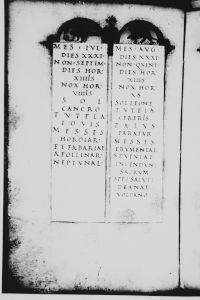 MES · IVL
DIES XXXI
NON · SEPTIM
DIES HOR
XIIIIS
NOX HOR
VIIIIS
SOL
CANCRO
TVTELA
IOVIS
MESSES
HORDIAR
ET FABARIAE
APOLLINAR
NEPTVNAL
MES · AVG
DIES XXXI
NON · QVINT
DIES HOR
XIIII
NOX HOR
SOL LEONE
TVTELA
CERERIS
PALVS
PARATVR
MESSES
FRVMENTAR
INCENDVN
SACRVM
SPEI SALVTI
DEANAE